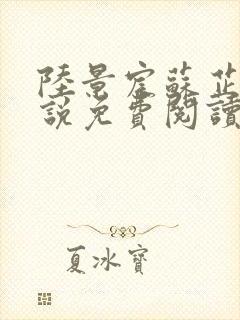 陸景宦蘇芷
說免費閱讀
夏冰寶